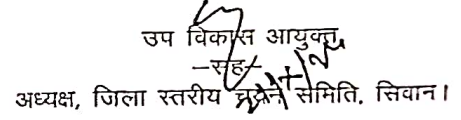 उप विकास आयुक्त
–सह–
अध्यक्ष, जिला स्तरीय चयन समिति, सिवान।